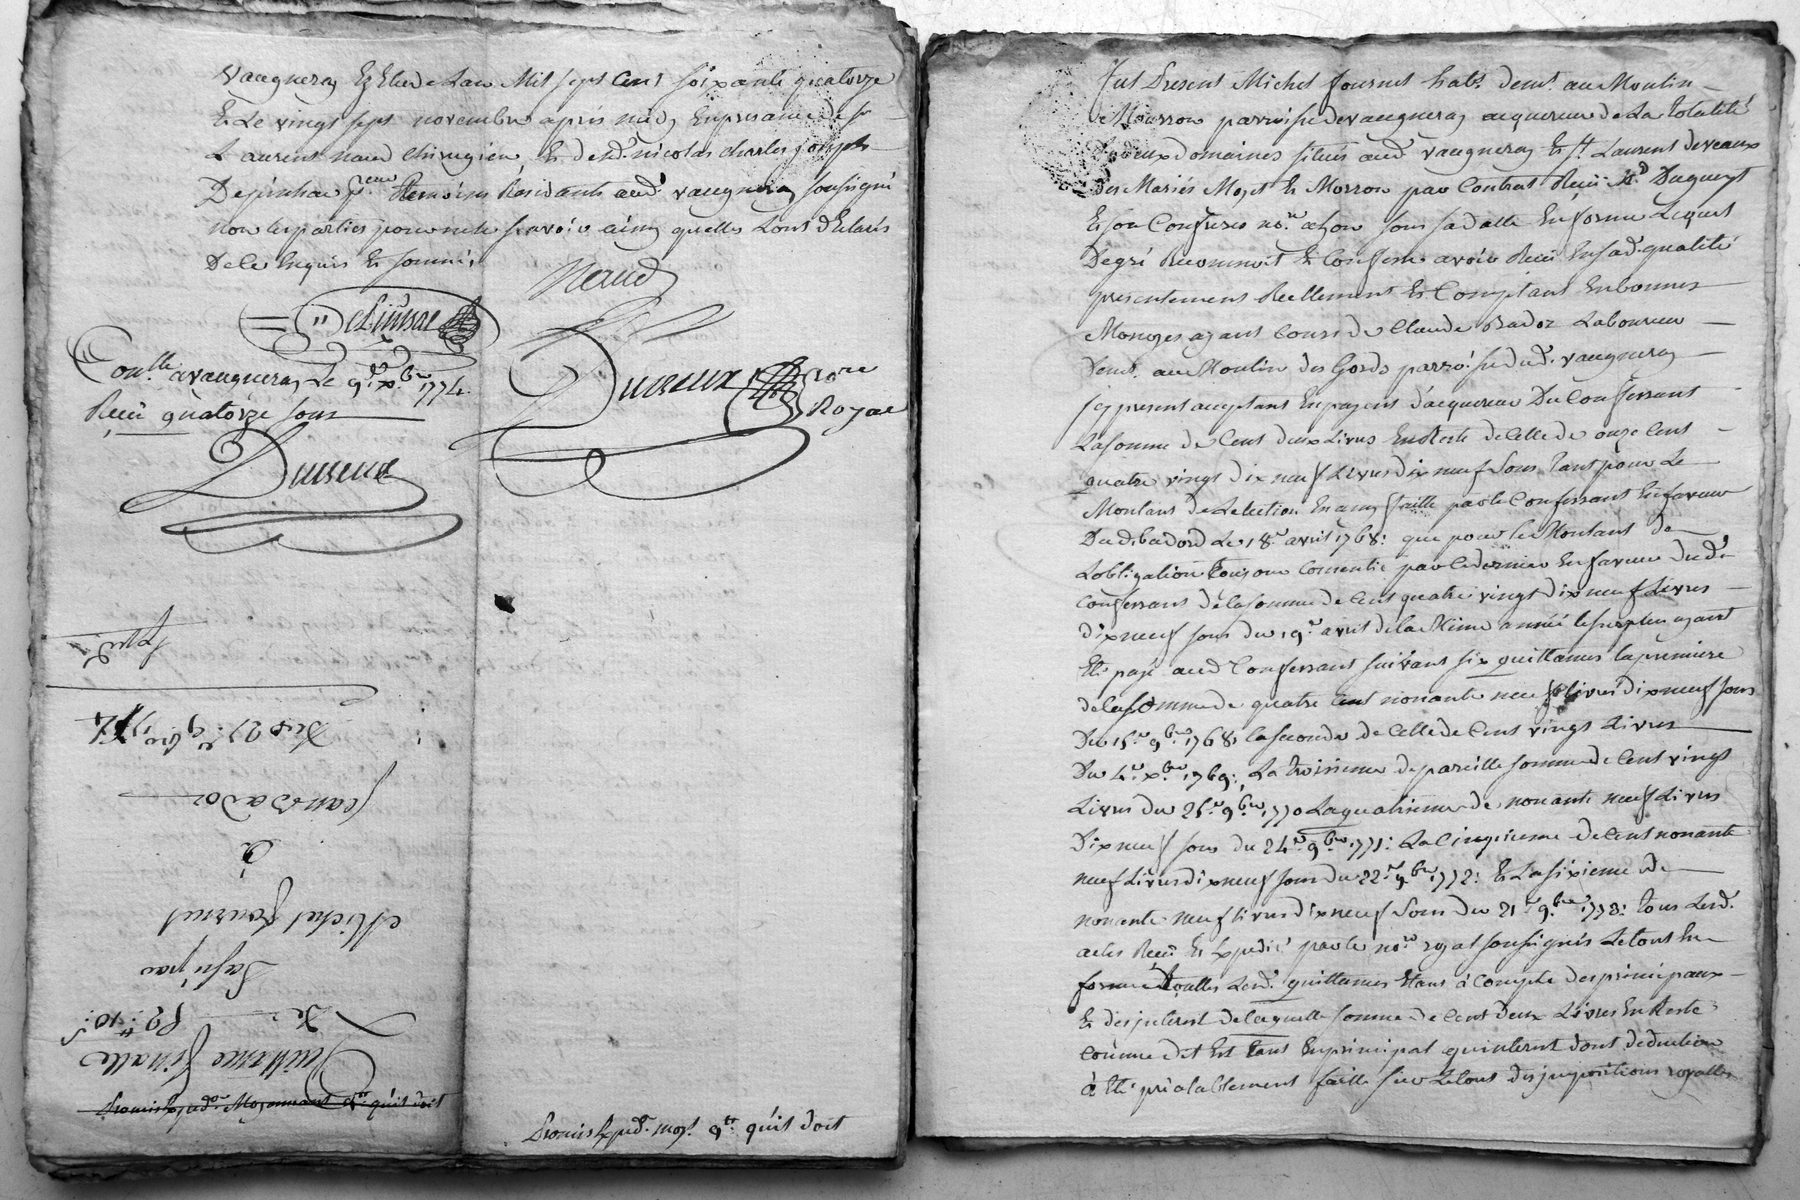 vaugneray Et Etude Lan Mil sept Cent soixante quatorze
Et Le vingt sept novembre après midy En presance de sr
Laurent naud chirugien Et de sr nicolas charles
temoins Residants aud. vaugneray soussignés
non les parties pour ne le sçavoir ainsy quelles Lont declarés
De ce Enquis Et sommés
Naud
Conllé a vaugneray Le 9.e xbre 1774.
Reçû quatorze sous
Ducreux
Ducreux no.re
Royal
Promis Exped. moy.t q.tr qu'il doit
Exp.é
Du 27.e 9.bre 1774
jean Bador
à
Michel fournet
Passé par
De 
Quittance finalle
Promis Exped.on Moyennant q.tr qu'il doit
Fut Present Michel fournet hab.t dem.t au Moulin
Mourron parroisse de vaugneray acquereur de La totalité
de deux domaines situés aud. vaugneray Et S.t Laurent de veaux
des Mariés Mozet Et Morron par Contrat Reçû M.e Dugueyt
Et son Confrere no.re a Lyon sous sa datte En forme Lequel
De gré Reconnoit Et Confesse avoir Reçû En sad. qualité
presentement Reellement Et Comptant En bonnes
Monoyes ayant cours de Claude Bador Laboureur
Dem.t au Moulin des Gords parroisse dud. vaugneray
Icy present acceptant En payent d'acquereur Du Confessant
La somme de Cent deux Livres En Reste de Celle de onze Cent
quatre vingt dix neuf Livres dix neuf sous tant pour Le
Montant de Lelection En amy faitte par le Confessant En faveur
Dud. bador Le 18.e avril 1768: que pour le Montant de
Lobligation Consentie par Ce dernier En faveur dud.
Confessant de la somme de Cent quatre vingt dix neuf Livres
dix neuf sous du 19.e avril de la Même année le surplus ayant
Eté payé aud Confessant suivant six quittances la premiere
de la somme de quatre Cent nonante neuf livres dix neuf sous
Du 15.e 9.bre 1768. la seconde de Celle de Cent vingt Livres
Du 4.e x.bre 1769; La troisieme de pareille somme de Cent vingt
Livres du 25.e 9.bre 1770 La quatrieme de nonante neuf Livres
Dix neuf sous du 24.e 9.bre 1771: La Cinquieme de Cent nonante
neuf Livres dix neuf sous du 22.e 9.bre 1772: Et La sixieme de
nonante neuf livres dix neuf sous du 21.e 9.bre 1773: tous Lesd.
actes Reçû Et Expedié par le no.re royal soussignés Le tout En
forme touttes Lesd. quittances Etant à Compte des principaux
Et des interet de laquelle somme de Cent deux Livres En Reste
Comme dit Est tant En principal qu'interet dont deduction
à Eté préalablement faitte sur Le tout des impositions royalles